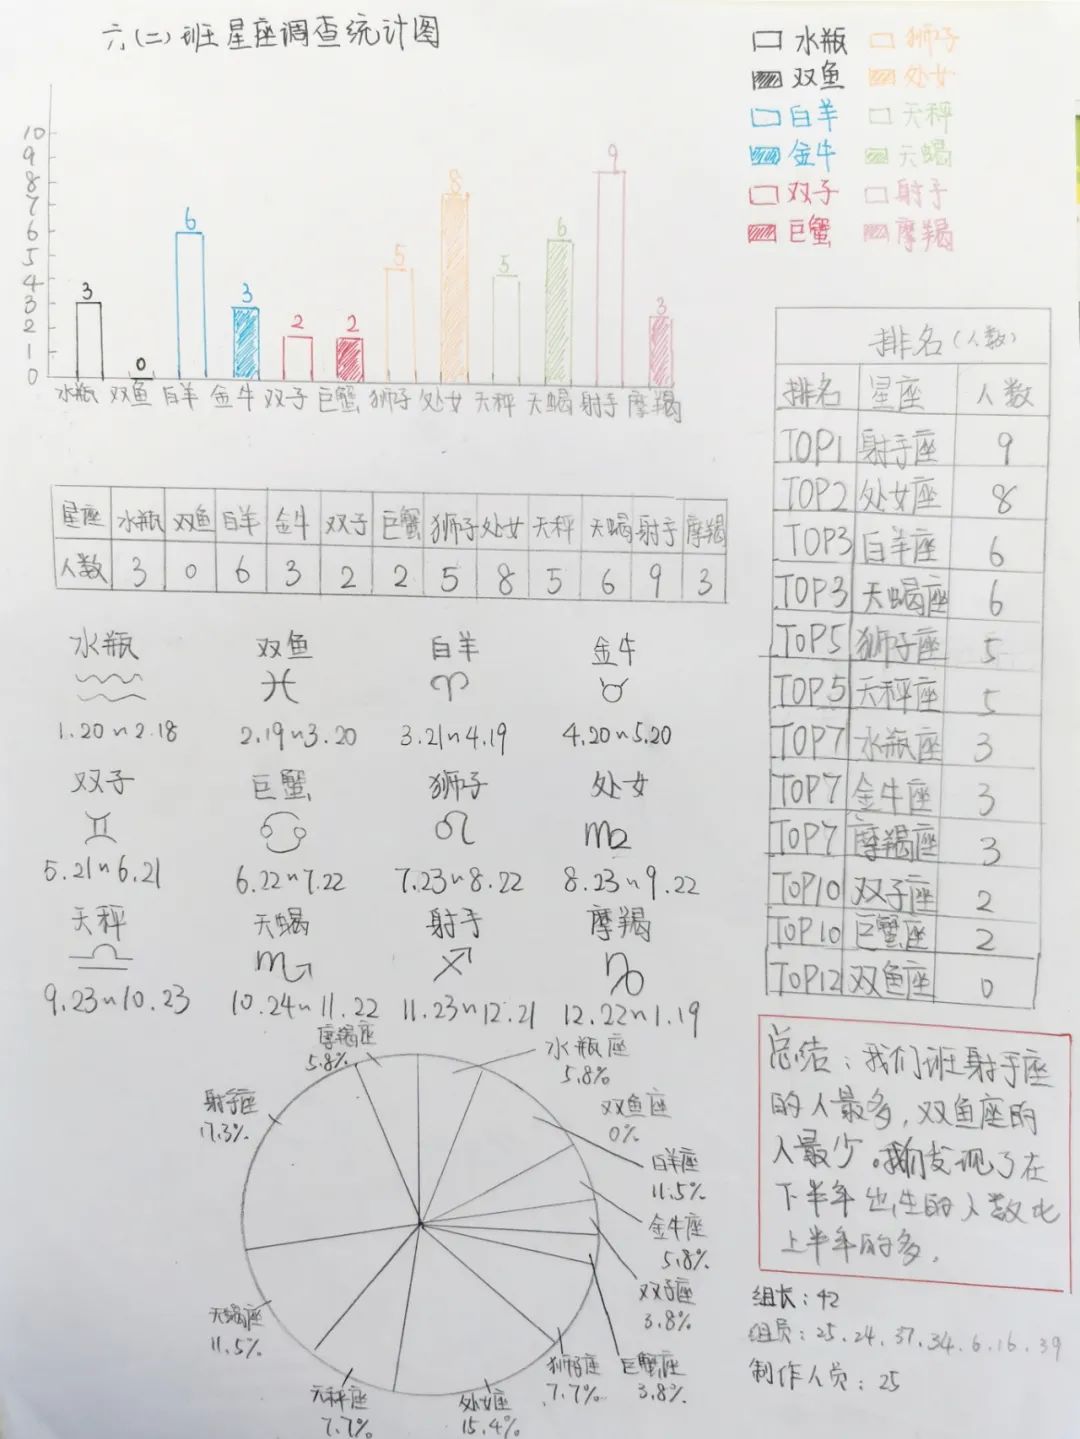 六(二)班星座调查统计图
水瓶 狮子
双鱼 处女
白羊 天秤
金牛 天蝎
双子 射手
巨蟹 摩羯
10
9
8
7
6
5
4
3
2
1
0
3 0 6 3 2 2 5 8 5 6 9 3
水瓶 双鱼 白羊 金牛 双子 巨蟹 狮子 处女 天秤 天蝎 射手 摩羯
星座 水瓶 双鱼 白羊 金牛 双子 巨蟹 狮子 处女 天秤 天蝎 射手 摩羯
人数 3 0 6 3 2 2 5 8 5 6 9 3
排名(人数)
排名 星座 人数
TOP1 射手座 9
TOP2 处女座 8
TOP3 白羊座 6
TOP3 天蝎座 6
TOP5 狮子座 5
TOP5 天秤座 5
TOP7 水瓶座 3
TOP7 金牛座 3
TOP7 摩羯座 3
TOP10 双子座 2
TOP10 巨蟹座 2
TOP12 双鱼座 0
水瓶 双鱼 白羊 金牛
1.20~2.18 2.19~3.20 3.21~4.19 4.20~5.20
双子 巨蟹 狮子 处女
5.21~6.21 6.22~7.22 7.23~8.22 8.23~9.22
天秤 天蝎 射手 摩羯
9.23~10.23 10.24~11.22 11.23~12.21 12.22~1.19
摩羯座
5.8%
水瓶座
5.8%
双鱼座
0%
白羊座
11.5%
金牛座
5.8%
双子座
3.8%
巨蟹座
3.8%
狮子座
7.7%
处女座
15.4%
天秤座
7.7%
天蝎座
11.5%
射手座
17.3%
总结:我们班射手座
的人最多,双鱼座的
人最少。我们发现了在
下半年出生的人数比
上半年的多.
组长:42
组员:25.24.37.34.6.16.39
制作人员:25